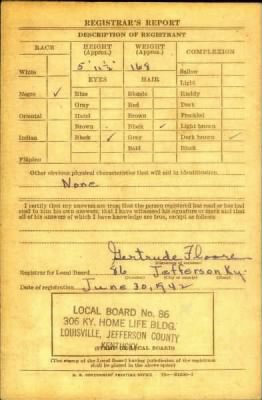 REGISTRAR'S REPORT
DESCRIPTION OF REGISTRANT
RACE HEIGHT (Approx.) WEIGHT (Approx.) COMPLEXION
5' 11½" 168
White Sallow
EYES HAIR Light
Negro ✓ Blue Blonde Ruddy
Gray Red Dark
Oriental Hazel Brown Freckled
Brown Black ✓ Light brown
Indian Black ✓ Gray Dark brown ✓
Bald Black
Filipino
Other obvious physical characteristics that will aid in identification
None
I certify that my answers are true; that the person registered has read or has had
read to him his own answers; that I have witnessed his signature or mark and that
all of his answers of which I have knowledge are true, except as follows:
Gertrude Floore
Registrar for Local Board 86 Jefferson Ky.
Date of registration June 30, 1942
LOCAL BOARD No. 86
306 KY. HOME LIFE BLDG.
LOUISVILLE, JEFFERSON COUNTY
KENTUCKY
(STAMP OF LOCAL BOARD)
(The stamp of the Local Board having jurisdiction of the registrant
shall be placed in the above space)
U. S. GOVERNMENT PRINTING OFFICE